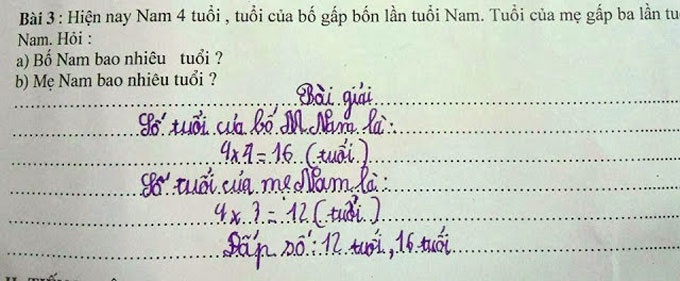 Bài 3 : Hiện nay Nam 4 tuổi , tuổi của bố gấp bốn lần tuổi Nam. Tuổi của mẹ gấp ba lần tu
Nam. Hỏi :
a) Bố Nam bao nhiêu tuổi ?
b) Mẹ Nam bao nhiêu tuổi ?
Bài giải
Số tuổi của bố Nam là:
4 x 4 = 16 (tuổi)
Số tuổi của mẹ Nam là:
4 x 3 = 12 (tuổi)
Đáp số: 12 tuổi, 16 tuổi